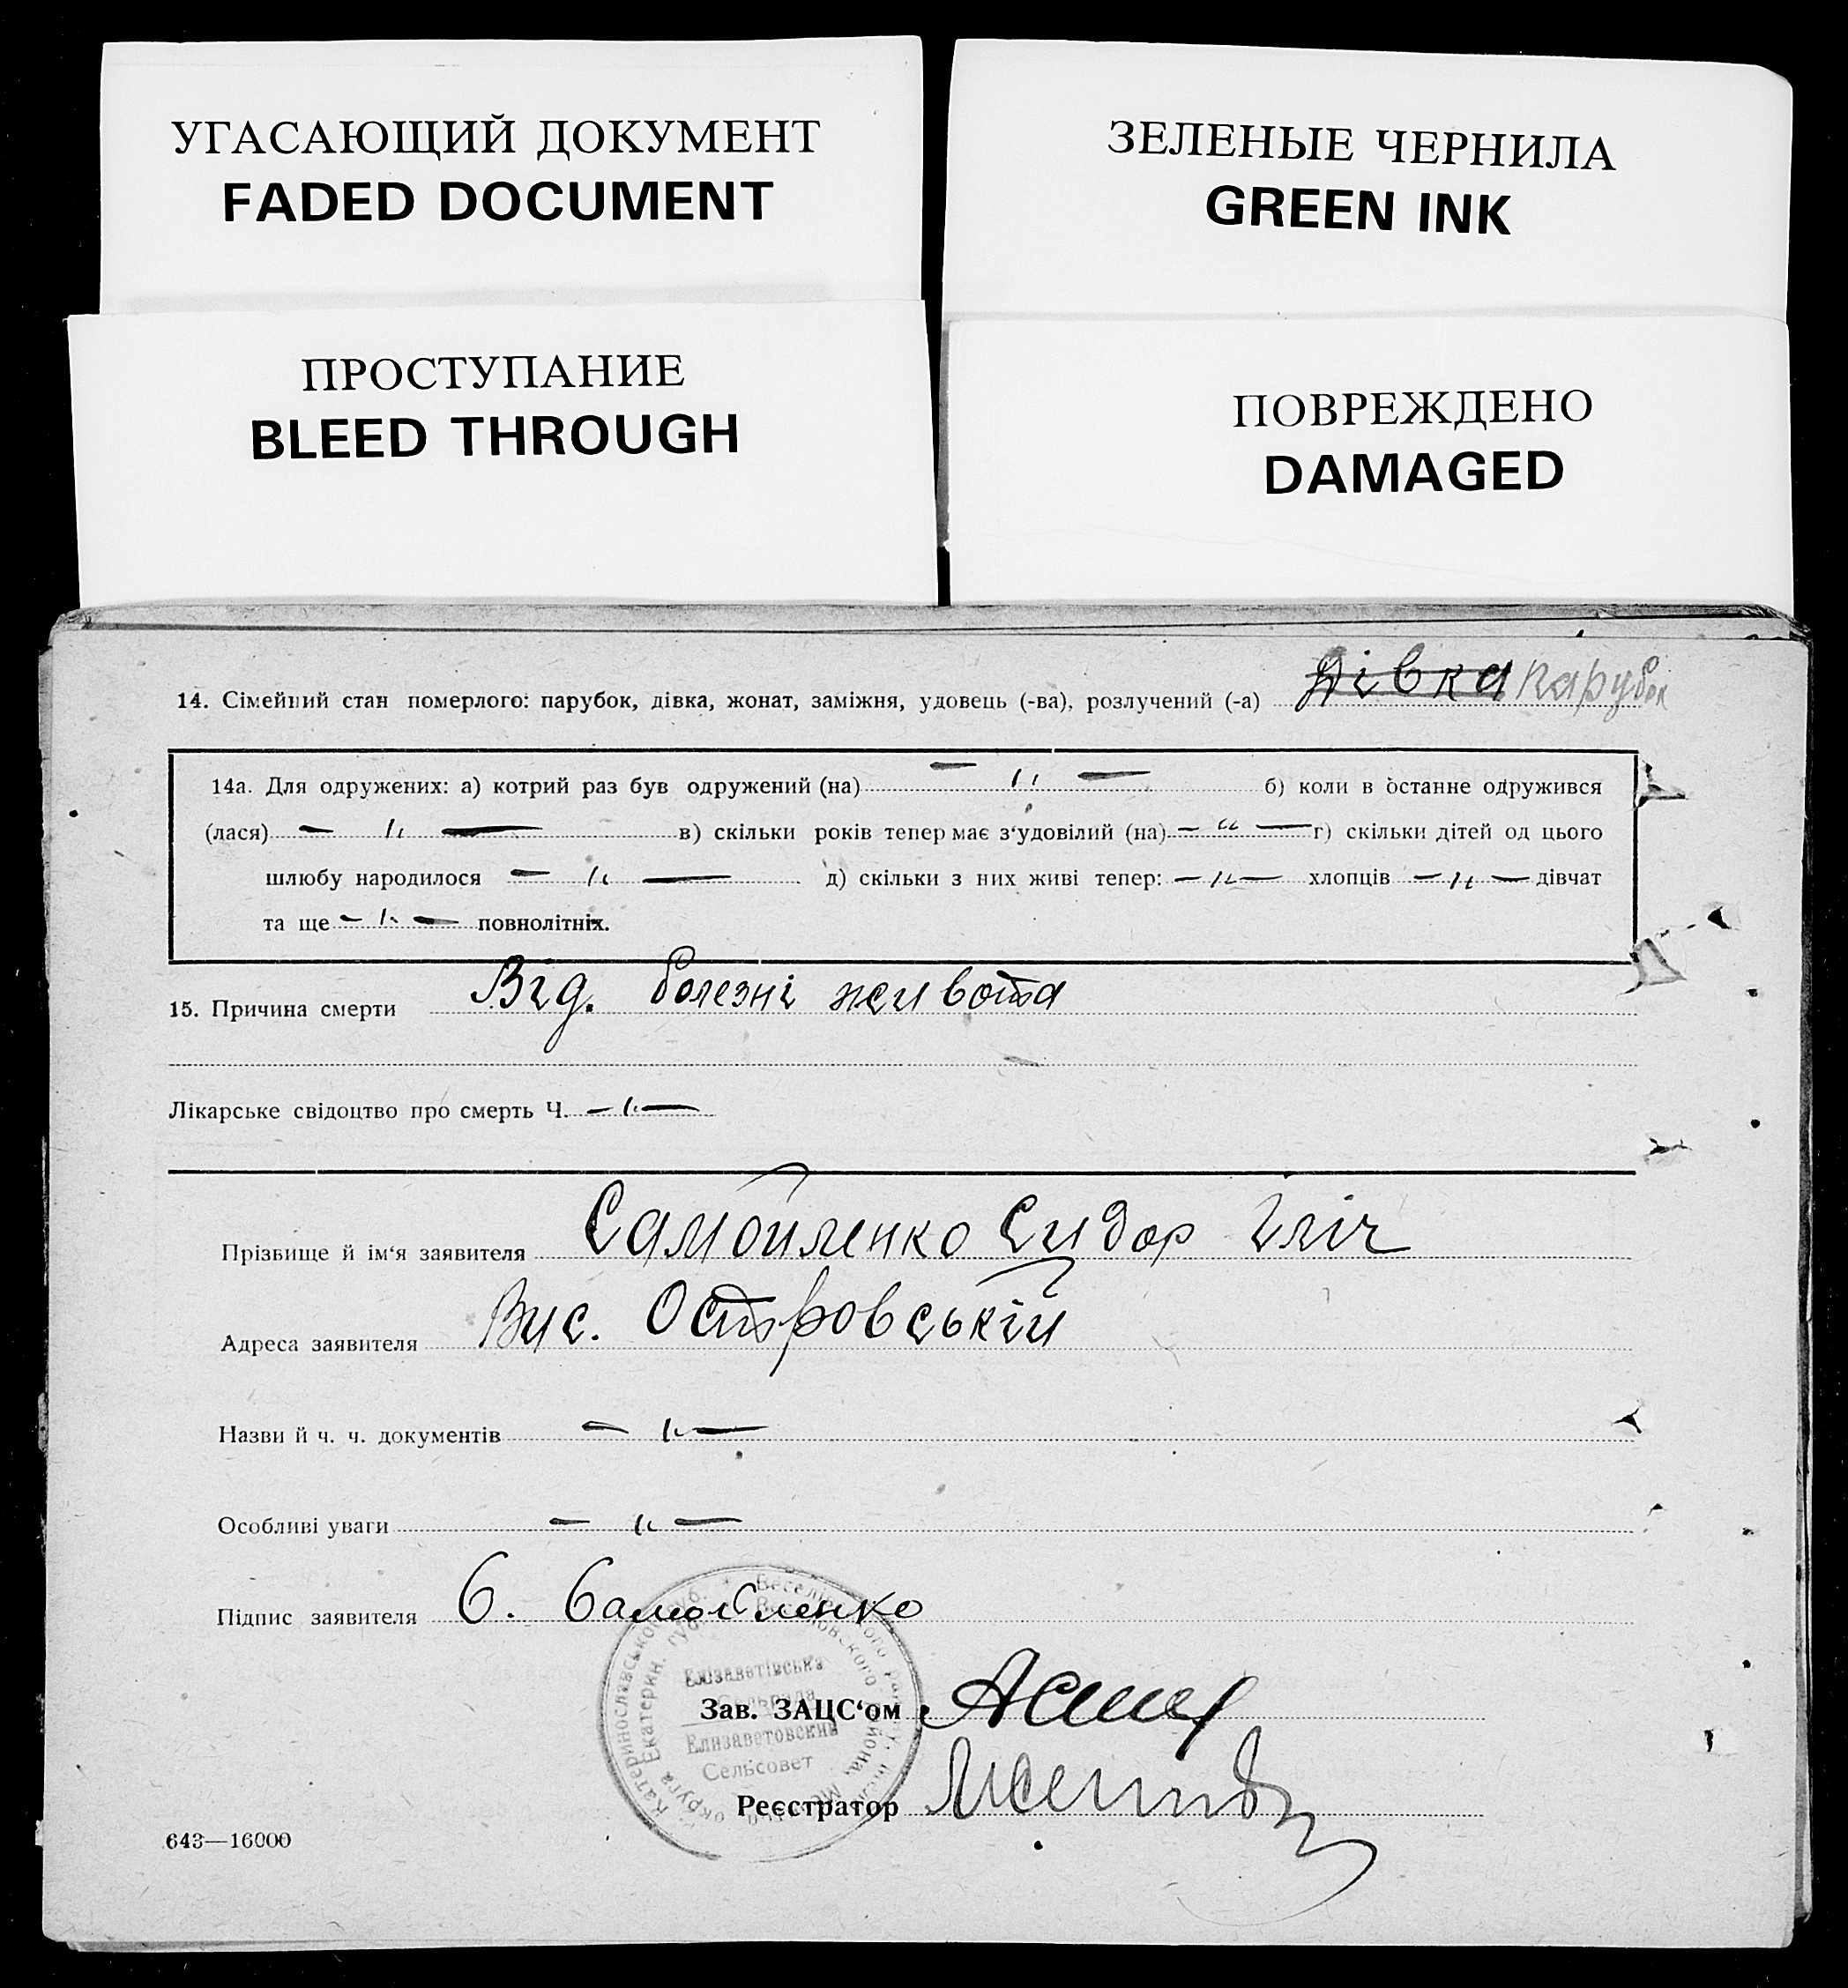 УГАСАЮЩИЙ ДОКУМЕНТ
FADED DOCUMENT
ЗЕЛЕНЫЕ ЧЕРНИЛА
GREEN INK
ПРОСТУПАНИЕ
BLEED THROUGH
ПОВРЕЖДЕНО
DAMAGED
14. Сімейний стан померлого: парубок, дівка, жонат, заміжня, удовець (-ва), розлучений (-а) дівка парубок
14а. Для одружених: а) котрий раз був одружений (на) — 〃 — б) коли в останне одружився
(лася) — 〃 — в) скільки років тепер має з‘удовілий (на) — 〃 — г) скільки дітей од цього
шлюбу народилося — 〃 — д) скільки з них живі тепер: — 〃 — хлопців — 〃 — дівчат
та ще — 〃 — повнолітніх.
15. Причина смерти Від. болезні живота
Лікарське свідоцтво про смерть Ч. — 〃 —
Прізвище й ім‘я заявителя Самойленко Сидор Іліч
Адреса заявителя Вис. Островській
Назви й ч. ч. документів — 〃 —
Особливі уваги — 〃 —
Підпис заявителя С. Самойленко
Єлізаветівська
Сельрада
Елизаветовский
Сельсовет
Зав. ЗАЦС‘ом
Реєстратор
643—16000